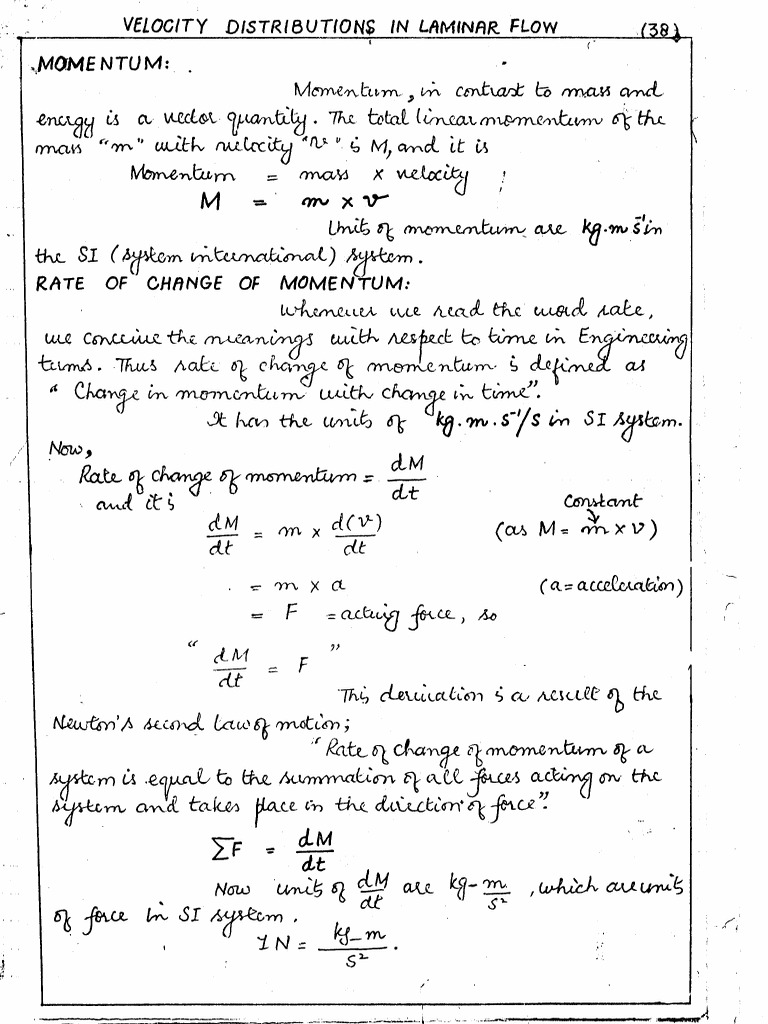 VELOCITY DISTRIBUTIONS IN LAMINAR FLOW (38)
MOMENTUM:
Momentum, in contrast to mass and
energy is a vector quantity. The total linear momentum of the
mass "m" with velocity "v" is M, and it is
Momentum = mass x velocity
M = m x v
Units of momentum are kg.m s⁻¹ in
the SI (system international) system.
RATE OF CHANGE OF MOMENTUM:
Whenever we read the word rate,
we conceive the meanings with respect to time in Engineering
terms. Thus rate of change of momentum is defined as
" Change in momentum with change in time".
It has the units of kg.m.s⁻¹/s in SI system.
Now,
Rate of change of momentum = dM/dt
and it is
constant
dM/dt = m x d(v)/dt (as M = m x v)
= m x a (a = acceleration)
= F = acting force, so
" dM/dt = F "
This derivation is a result of the
Newton's second law of motion;
"Rate of change of momentum of a
system is equal to the summation of all forces acting on the
system and takes place in the direction of force".
ΣF = dM/dt
Now units of dM/dt are kg-m/s², which are units
of force in SI system.
1N = kg-m/s².